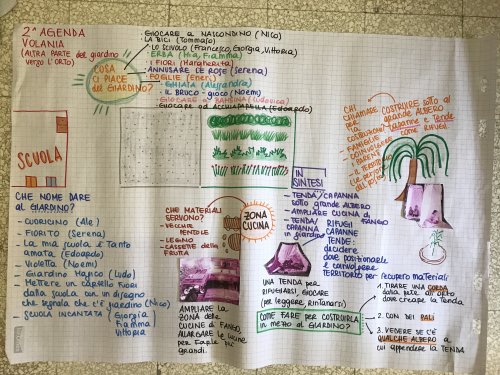 2ª AGENDA
VOLANIA
(ALTRA PARTE del giardino
verso l'ORTO)
COSA
CI PIACE
del GIARDINO?
- GIOCARE A NASCONDINO (Nico)
- LA BICI (Tommaso)
- LO SCIVOLO (Francesco, Giorgia, Vittoria)
- ERBA (Mia, Fiamma)
- I FIORI (Margherita)
- ANNUSARE LE ROSE (Serena)
- FOGLIE (Eneri)
- GHIAIA (Alessandra)
- IL BRUCO - gioco (Noemi)
- GIOCARE A BANDINA (Ludovica)
- GIOCARE ad ACCHIAPPARELLA (Edoardo)
SCUOLA
CHI
CHIAMIAMO
per la
COSTRUZIONE
- FAMIGLIE
- PARENTI
COSTRUIRE sotto al
grande ALBERO
Capanne e Tende
COME RIFUGI
CHE NOME DARE
AL GIARDINO?
- CUORICINO (Ale)
- FIORITO (Serena)
- La mia scuola è tanto
amata (Edoardo)
- Violetta (Noemi)
- Giardino Magico (Ludo)
- Mettere un cartello fuori
dalla scuola con un disegno
che segnala che c'è giardino (Nico)
- SCUOLA INCANTATA
Giorgia
Fiamma
Vittoria
CHE MATERIALI
SERVONO?
- VECCHIE
PENTOLE
- LEGNO
- CASSETTE della
FRUTTA
ZONA
CUCINA
AMPLIARE LA
ZONA delle
CUCINE di FANGO,
ALLARGARE le cucine
per farle più
grandi.
IN
SINTESI
- TENDA/CAPANNA
sotto grande ALBERO
- AMPLIARE CUCINA di
FANGO
- TENDA/
CAPANNA
in giardino
RIFUGI
CAPANNE
TENDE:
decidere
dove posizionarle
e coinvolgere
TERRITORIO per recupero materiali
UNA TENDA per
RIFUGIARSI, GIOCARE
(per leggere, rintanarsi)
COME FARE per COSTRUIRLA
in mezzo al GIARDINO?
1. TIRARE UNA CORDA
dalla rete all'orto
dove creare la tenda
2. CON DEI PALI
3. VEDERE SE C'È
QUALCHE ALBERO a
cui appendere la TENDA